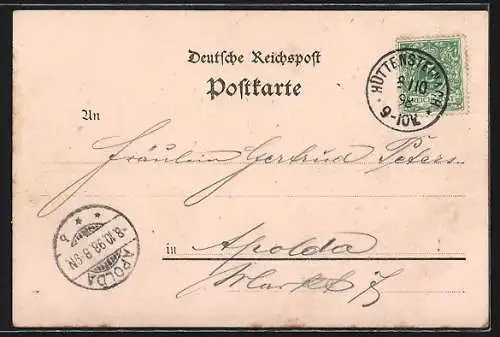 Deutsche Reichspost
Postkarte
HÜTTENSTEINACH
8/10
98
9-10V.
An
Fräulein Gertrud Peters
in Apolda
Markt 7
APOLDA
8.10.98.8-9N.
b